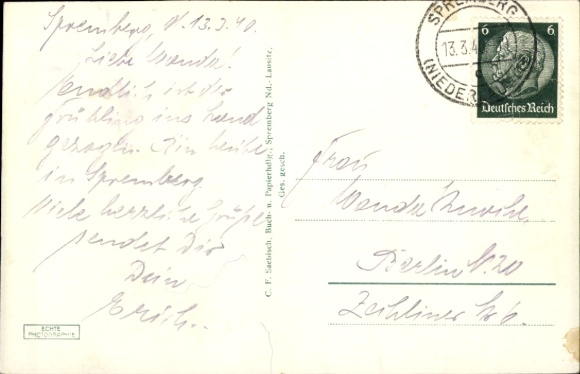 Spremberg, d. 13.3.40.
Liebe Wanda!
Endlich ist der
Frühling ins Land
gezogen. Bin heute
in Spremberg.
Viele herzliche Grüße
sendet Dir
Dein
Erich.
ECHTE
PHOTOGRAPHIE
C. F. Saebisch, Buch- u. Papierhdlg., Spremberg Nd.- Lausitz.
Ges. gesch.
SPREMBERG
13.3.4
(NIEDER
6 6
Deutsches Reich
Frau
Wanda
Berlin N. 20
Zehliner Str 6.